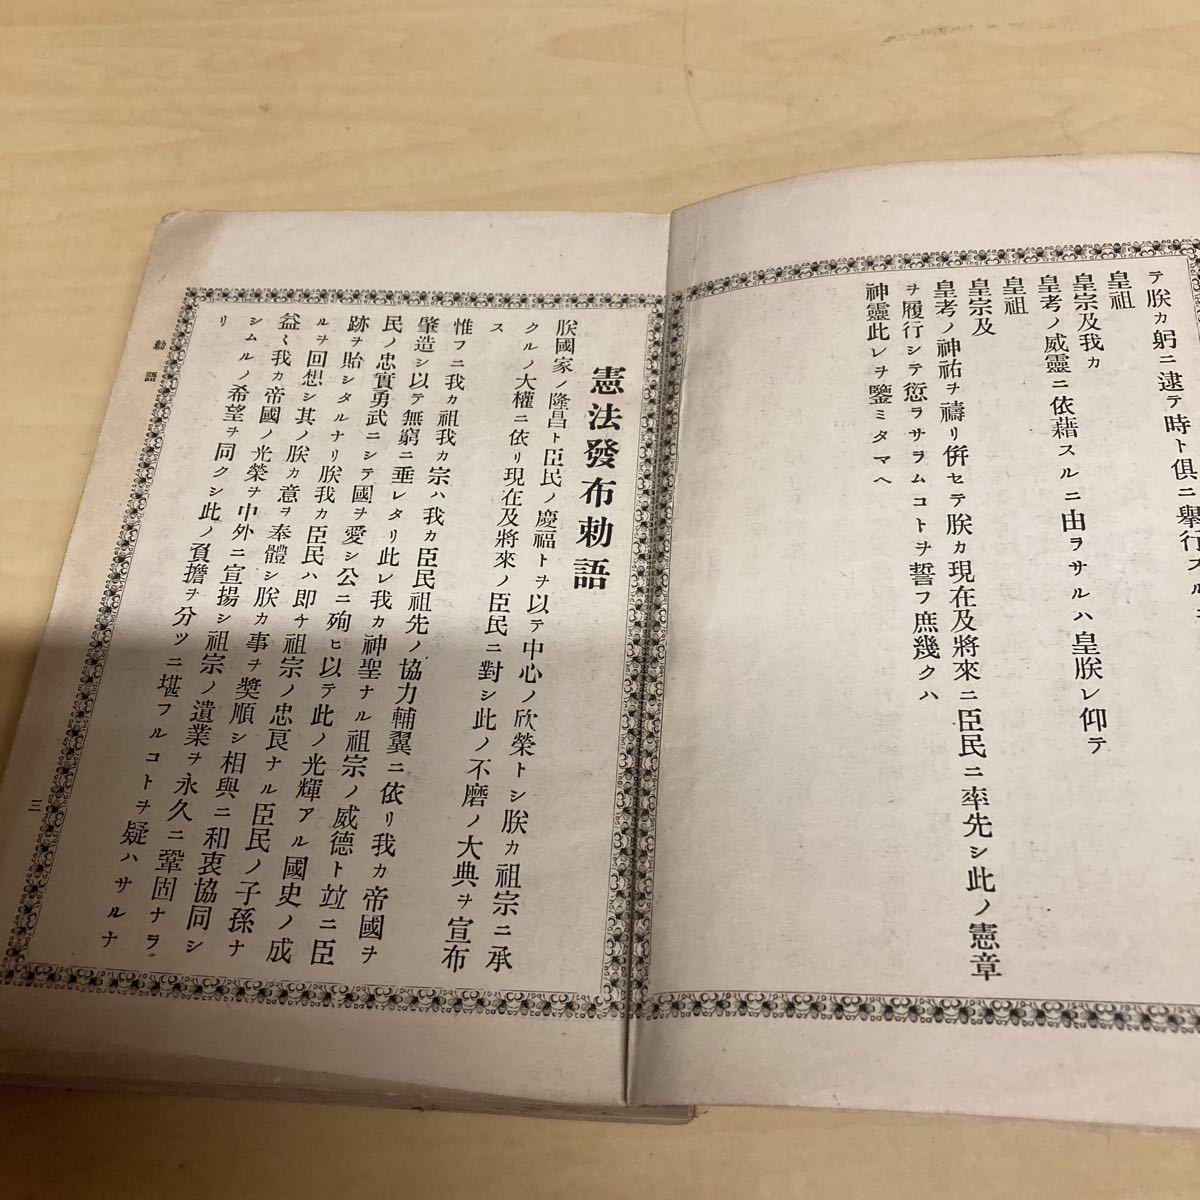 テ朕カ躬ニ逮テ時ト倶ニ擧行スルニ
皇祖
皇宗及我カ
皇考ノ威靈ニ依藉スルニ由ラサルハ皇朕レ仰テ
皇祖
皇宗及
皇考ノ神祐ヲ禱リ併セテ朕カ現在及將來ニ臣民ニ率先シ此ノ憲章
ヲ履行シテ愆ラサラムコトヲ誓フ庶幾クハ
神靈此レヲ鑒ミタマヘ
憲法發布勅語
朕國家ノ隆昌ト臣民ノ慶福トヲ以テ中心ノ欣榮トシ朕カ祖宗ニ承
クルノ大權ニ依リ現在及將來ノ臣民ニ對シ此ノ不磨ノ大典ヲ宣布
ス
惟フニ我カ祖我カ宗ハ我カ臣民祖先ノ協力輔翼ニ依リ我カ帝國ヲ
肇造シ以テ無窮ニ垂レタリ此レ我カ神聖ナル祖宗ノ威德ト竝ニ臣
民ノ忠實勇武ニシテ國ヲ愛シ公ニ殉ヒ以テ此ノ光輝アル國史ノ成
跡ヲ貽シタルナリ朕我カ臣民ハ即チ祖宗ノ忠良ナル臣民ノ子孫ナ
ルヲ回想シ其ノ朕カ意ヲ奉體シ朕カ事ヲ奬順シ相與ニ和衷協同シ
益〻我カ帝國ノ光榮ヲ中外ニ宣揚シ祖宗ノ遺業ヲ永久ニ鞏固ナラ
シムルノ希望ヲ同クシ此ノ負擔ヲ分ツニ堪フルコトヲ疑ハサルナ
リ
勅語
三